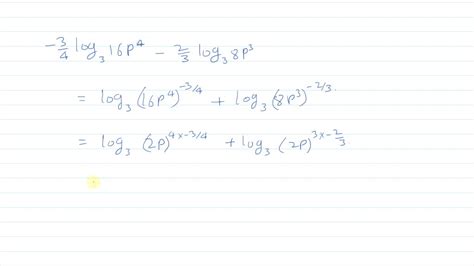 -3/4 log₃ 16p⁴ - 2/3 log₃ 8p³
= log₃ (16p⁴)^-3/4 + log₃ (8p³)^-2/3
= log₃ (2p)^4×-3/4 + log₃ (2p)^3×-2/3